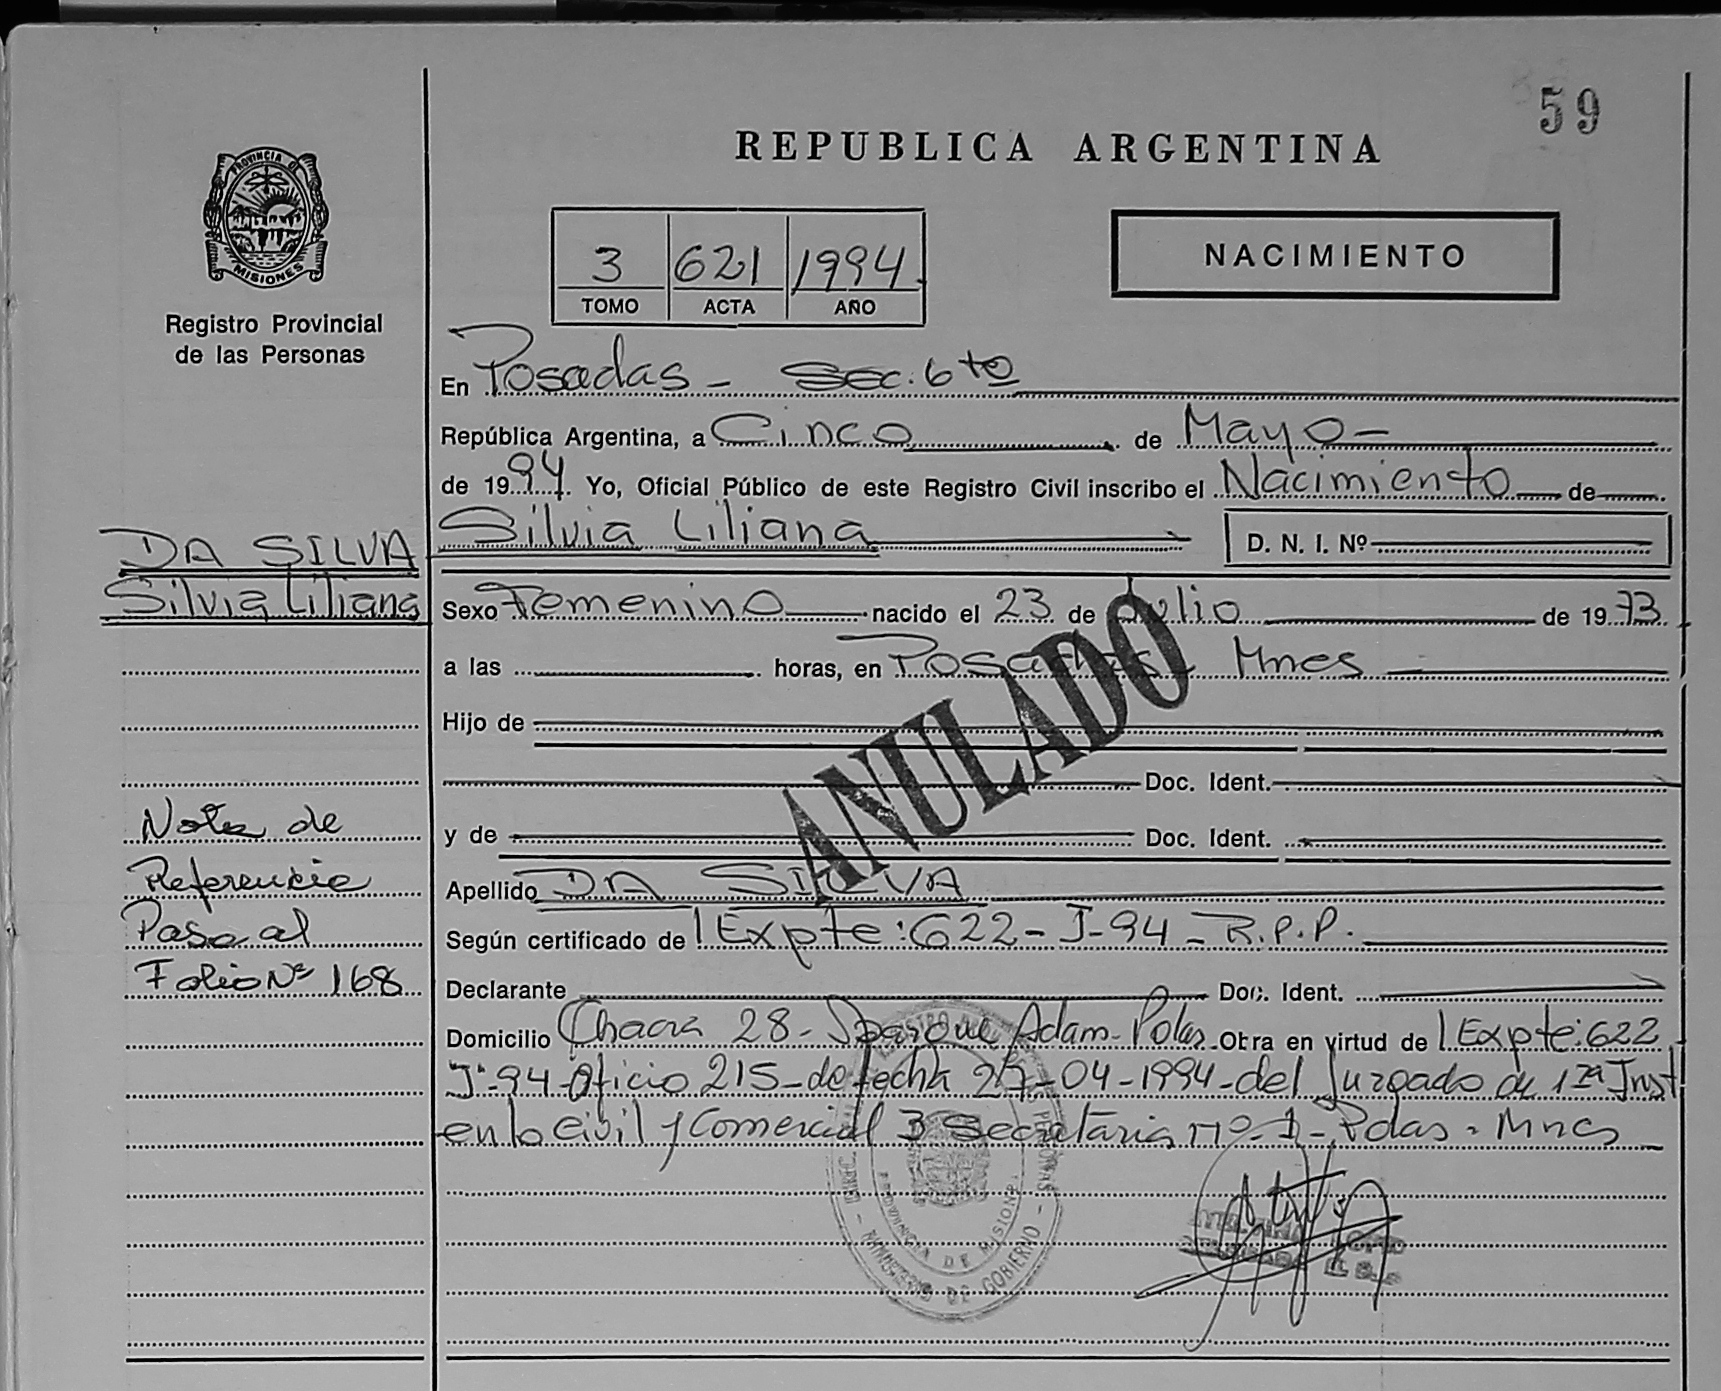 59
REPUBLICA ARGENTINA
PROVINCIA DE
MISIONES
Registro Provincial
de las Personas
3 621 1994
TOMO ACTA AÑO
NACIMIENTO
En Posadas - Sec. 6to
República Argentina, a Cinco de Mayo -
de 1994. Yo, Oficial Público de este Registro Civil inscribo el Nacimiento de
Silvia Liliana D. N. I. Nº
DA SILVA
Silvia Liliana
Sexo Femenino nacido el 23 de Julio de 1973
a las horas, en Posadas Mnes
Hijo de
Doc. Ident.
y de Doc. Ident.
ANULADO
Apellido DA SILVA
Según certificado de Expte: 622-J-94 - R.P.P.
Declarante Doc. Ident.
Domicilio Chacra 28 - Adam - Pdas Obra en virtud de Expte: 622
J-94 Oficio 215 - de fecha 27-04-1994 - del Juzgado de 1ra Inst
en lo Civil y Comercial 3 Secretaria nº 1 - Pdas - Mnes
Nota de
Referencia
Pasa al
Folio Nº 168
PROVINCIA DE MISIONES
MINISTERIO DE GOBIERNO